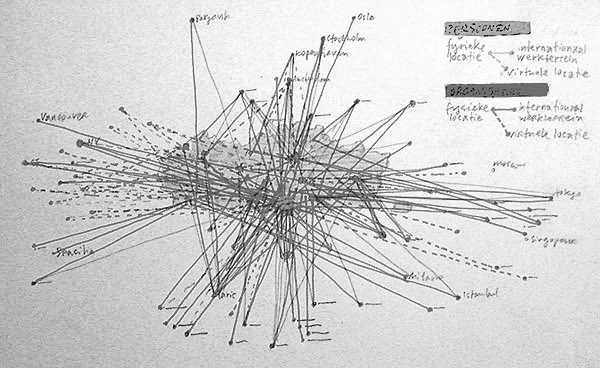 Oslo
Stockholm
Kopenhaven
Vancouver
NY
Brasilia
Paris
Milano
Istanbul
moscow
tokyo
Singapore
PERSONEN
fysieke locatie
internationaal werkterrein
virtuele locatie
ORGANISATIE
fysieke locatie
internationaal werkterrein
virtuele locatie